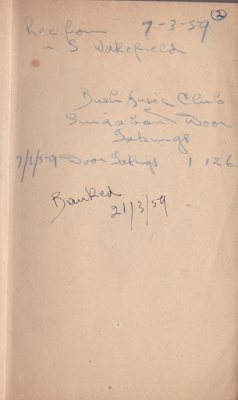 ② 
Rec from 7-3-59
S Wakefield
Bush Music Club
Singabout Door
Takings
7/3/59 Door Takings 1 12 6
Banked
21/3/59